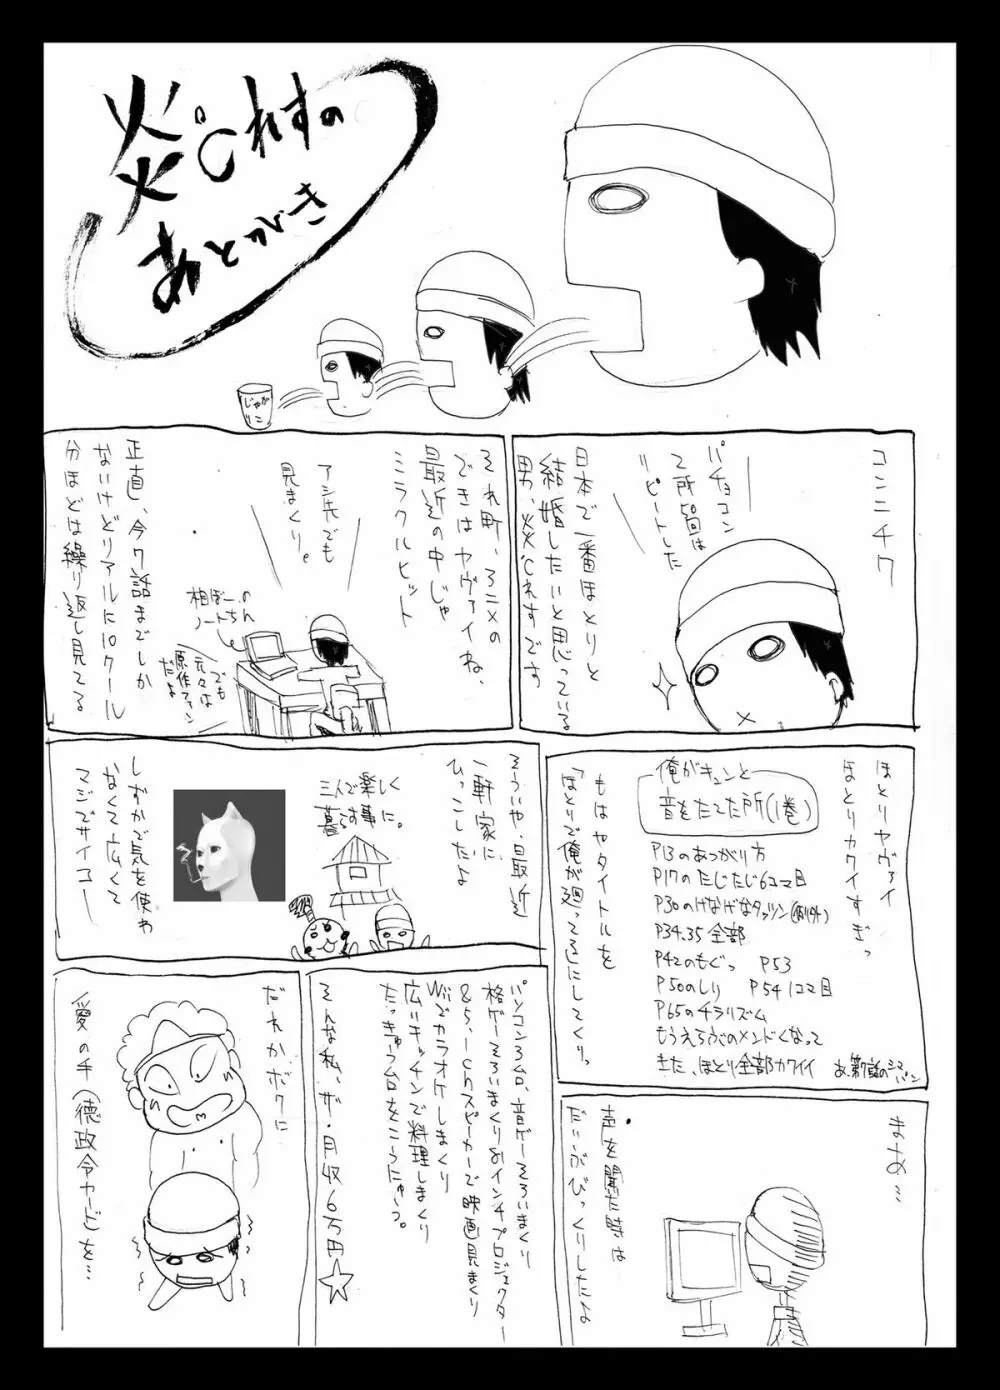 炎℃れすの
あとがき
じゃが
りこ
コンニチワ
パチョコン
て所50回は
リピートした
日本で一番ほとりと
結婚したいと思っている
男、炎℃れすです
それ町、アニメの
できはヤヴァイね、
最近の中じゃ
ミラクルヒット
アシ先でも
見まくり。
相ぼーの
ノートちん
でも
元々は
原作ファン
だよ
正直、今7話までしか
ないけどリアルに10クール
分ほどは繰り返し見てる
ほとりヤヴァイ
ほとりカワイすぎっ
俺がキュンと
音をたてた所(1巻)
P13のあつがり方
P17のたじたじ6コマ目
P30のけなげなタッツン(例外)
P34.35全部
P42のもぐっ P53
P50のしり P54 1コマ目
P65のチラリズム
もうえらぶのメンドくなって
きた、ほとり全部カワイイ
もはやタイトルを
「ほとりで俺が廻ってる」にしてくりっ
そういや、最近
一軒家に
ひっこしたよ
三人で楽しく
暮らす事に。
しずかで気を使わ
なくて広くて
マジでサイコー
まあ…
声を聞いた時は
だいぶびっくりしたな
パソコン3台、音ゲーそろいまくり
格ゲーそろいまくり80インチプロジェクター
&5.1chスピーカーで映画見まくり
Wiiでカラオケしまくり
広いキッチンで料理しまくり
たっきゅう台をこうにゅう。
そんな私、ザ・月収6万円☆
だれかボクに
愛の手(徳政令カード)を…